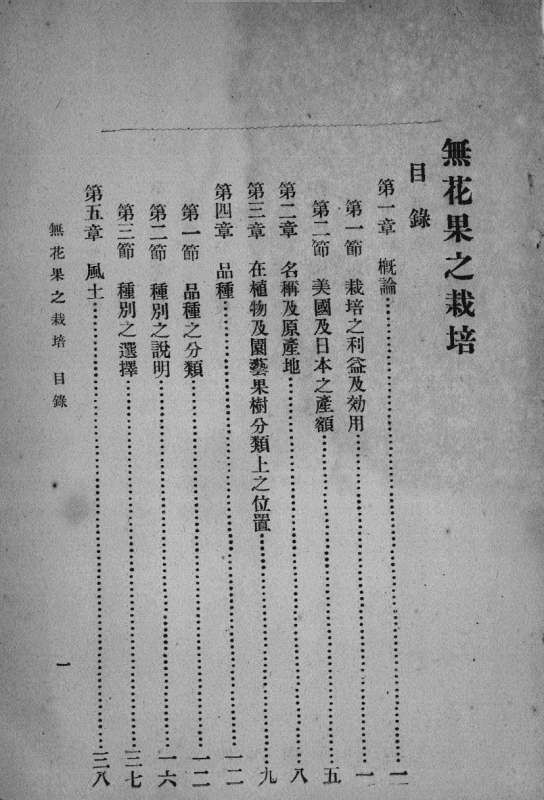 無花果之栽培
目錄
第一章 概論……一
第一節 栽培之利益及効用……一
第二節 美國及日本之產額……五
第二章 名稱及原產地……八
第三章 在植物及園藝果樹分類上之位置……九
第四章 品種……一二
第一節 品種之分類……一二
第二節 種別之說明……一六
第三節 種別之選擇……三七
第五章 風土……三八
無花果之栽培 目錄
一